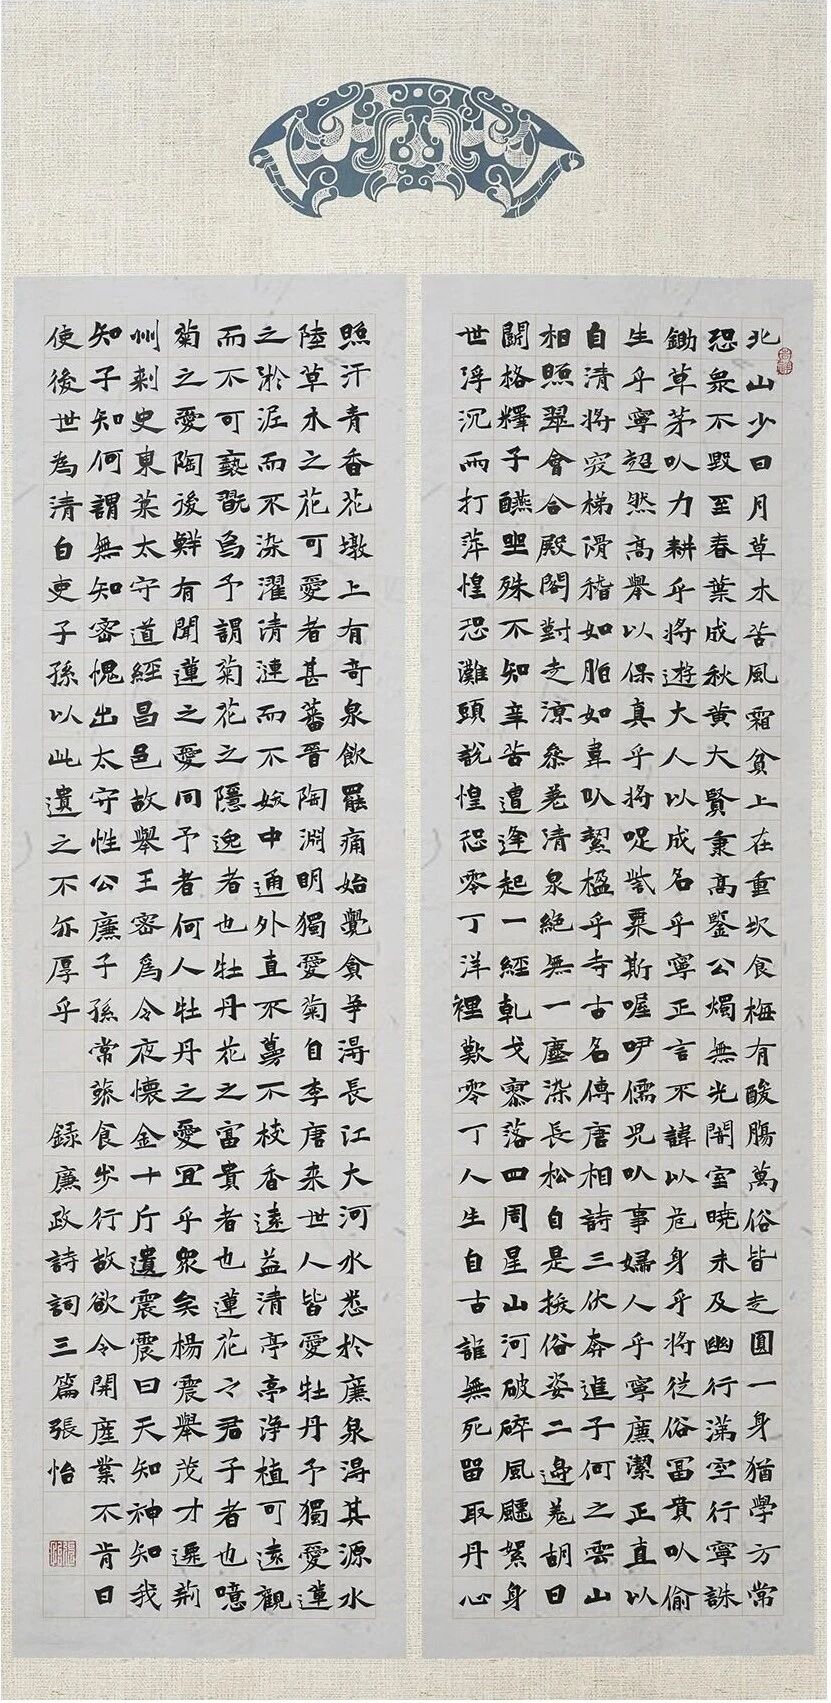 北山少日月草木苦風霜貧上在重坎食梅有酸腸萬俗皆走圓一身猶學方常
恐衆不毀至春葉成秋黃大賢秉高鑒公燭無光闇室曉未及幽行滿空行寧誅
鋤草茅以力耕乎將遊大人以成名乎寧正言不諱以危身乎將從俗冨貴以偷
生乎寧超然高舉以保真乎將哫訾栗斯喔咿儒兒以事婦人乎寧廉潔正直以
自清將突梯滑稽如脂如韋以絜楹乎寺古名傳唐相詩三伏奔進子何之雲山
相照翠會合殿閣對走涼參差清泉絕無一塵染長松自是挨俗姿二邊羌胡日
鬭格釋子醼殊不知辛苦遭逢起一經乹戈寥落四周星山河破碎風飄絮身
世浮沉雨打萍惶恐灘頭說惶恐零丁洋裡歎零丁人生自古誰無死畱取丹心
照汗青香花墩上有奇泉飲罷痛始覺貪爭得長江大河水悉於廉泉得其源水
陸草木之花可愛者甚蕃晉陶淵明獨愛菊自李唐來世人皆愛牡丹予獨愛蓮
之淤泥而不染濯清漣而不妖中通外直不蔓不枝香遠益清亭亭淨植可遠觀
而不可褻翫焉予謂菊花之隱逸者也牡丹花之富貴者也蓮花之君子者也噫
菊之愛陶後鮮有聞蓮之愛同予者何人牡丹之愛冝乎衆矣楊震舉茂才遷荊
州刺史東萊太守道經昌邑故舉王密為令夜懷金十斤遺震震曰天知神知我
知子知何謂無知密愧出太守性公廉子孫常蔬食步行故欲令開產業不肯曰
使後世為清白吏子孫以此遺之不亦厚乎 錄廉政詩詞三篇張怡